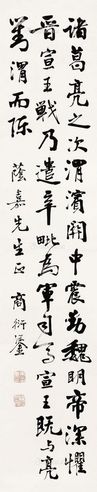 諸葛亮之次渭濱關中震動魏明帝深懼
晉宣王戰乃遣辛毗為軍司馬宣王既與亮
對渭而陳
蔭嘉先生正
商衍鎏